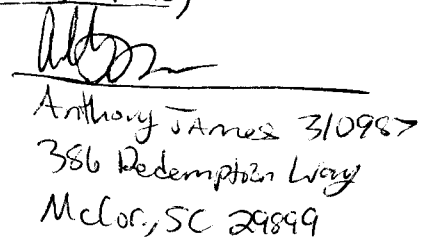 Anthony James 310987
386 Redemption Way
McCor, SC 29899